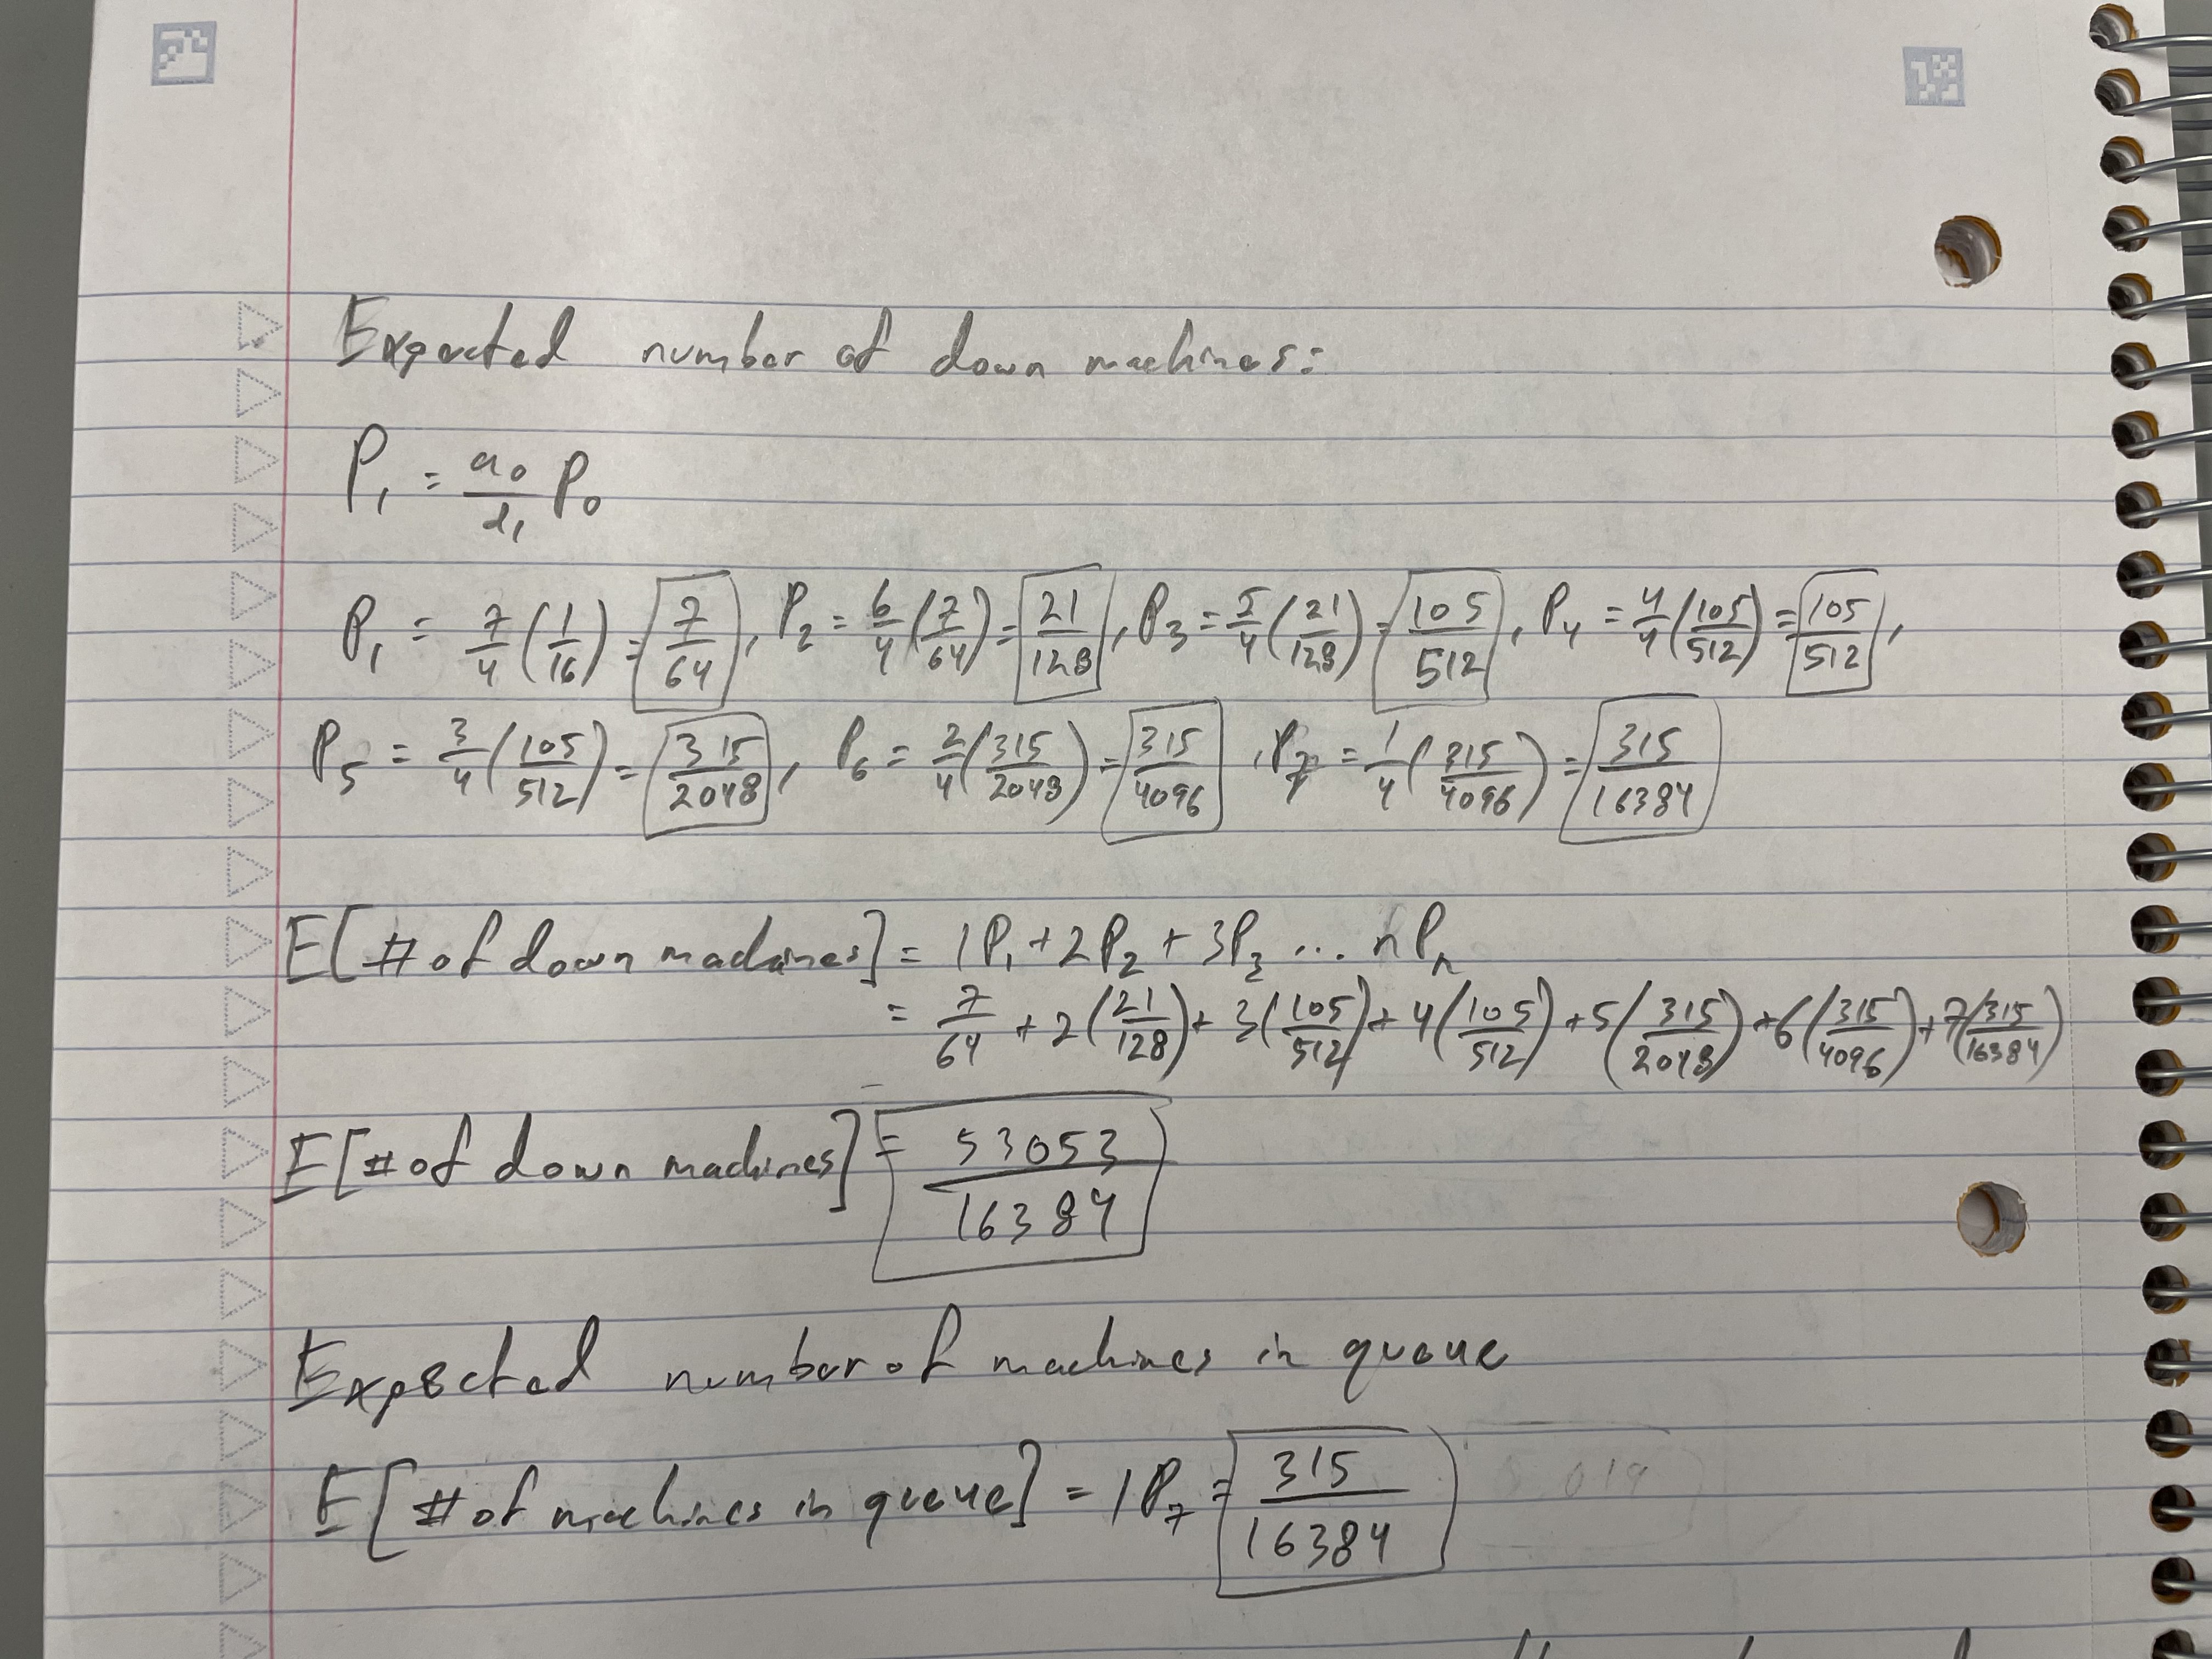 Expected number of down machines:
P₁ = a₀/d₁ P₀
P₁ = 7/4 (1/16) = 7/64, P₂ = 6/4 (7/64) = 21/128, P₃ = 5/4 (21/128) = 105/512, P₄ = 4/4 (105/512) = 105/512,
P₅ = 3/4 (105/512) = 315/2048, P₆ = 2/4 (315/2048) = 315/4096, P₇ = 1/4 (315/4096) = 315/16384
E[# of down machines] = 1P₁ + 2P₂ + 3P₃ ... nPₙ
= 7/64 + 2(21/128) + 3(105/512) + 4(105/512) + 5(315/2048) + 6(315/4096) + 7(315/16384)
E[# of down machines] = 53053/16384
Expected number of machines in queue
E[# of machines in queue] = 1P₇ = 315/16384